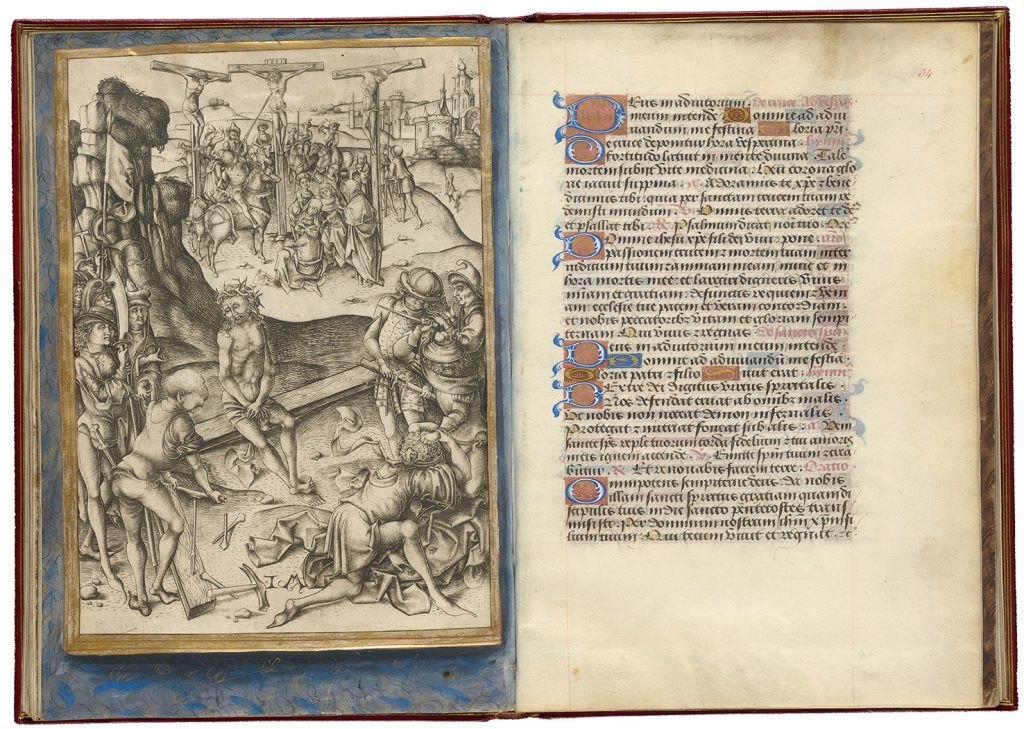 IM
34
Deus in adiutorium De cruce ad vespas
meum intende Domine ad adiu
uandum me festina Gloria pri
De cruce deponitur hora vespertina
fortitudo latuit in mente diuina Tale
mortem subiit vite medicina Heu corona glo
rie iacuit suppina Adoramus te xpe et bene
dicimus tibi quia per sanctam crucem tuam re
demisti mundum Omnis terra adoret te de
et psallat tibi Psalmum dicat
Domine ihesu xpe fili dei viui pone
passionem crucem et mortem tuam inter
iudicium tuum et animam meam nunc et in
hora mortis mee et largiri digneris viuis
miam et gratiam defunctis requiem et veni
am ecclesie tue pacem et veram concordiam
et nobis peccatoribus vitam et gloriam sempi
ternam Qui viuis et regnas De sancto spu
Deus in adiutorium meum intende
Domine ad adiuuandum me festina
Gloria patri et filio Sicut erat
Dextre dei digitus virtus spiritalis
Nos defendat eruat ab omnibus malis
Ut nobis non noceat demon infernalis
Protegat et nutriat foueat sub alis Veni
sancte sps reple tuorum corda fidelium et tui amoris
in eis ignem accende Emitte spiritum et crea
buntur Et renouabis faciem terre Oratio
Omnipotens sempiterne deus da nobis
illam sancti spiritus gratiam quam di
scipulis tuis in die sancto pentecostes trans
misisti Per dominum nostrum ihm xpm fili
um tuum Qui tecum viuit et regnat